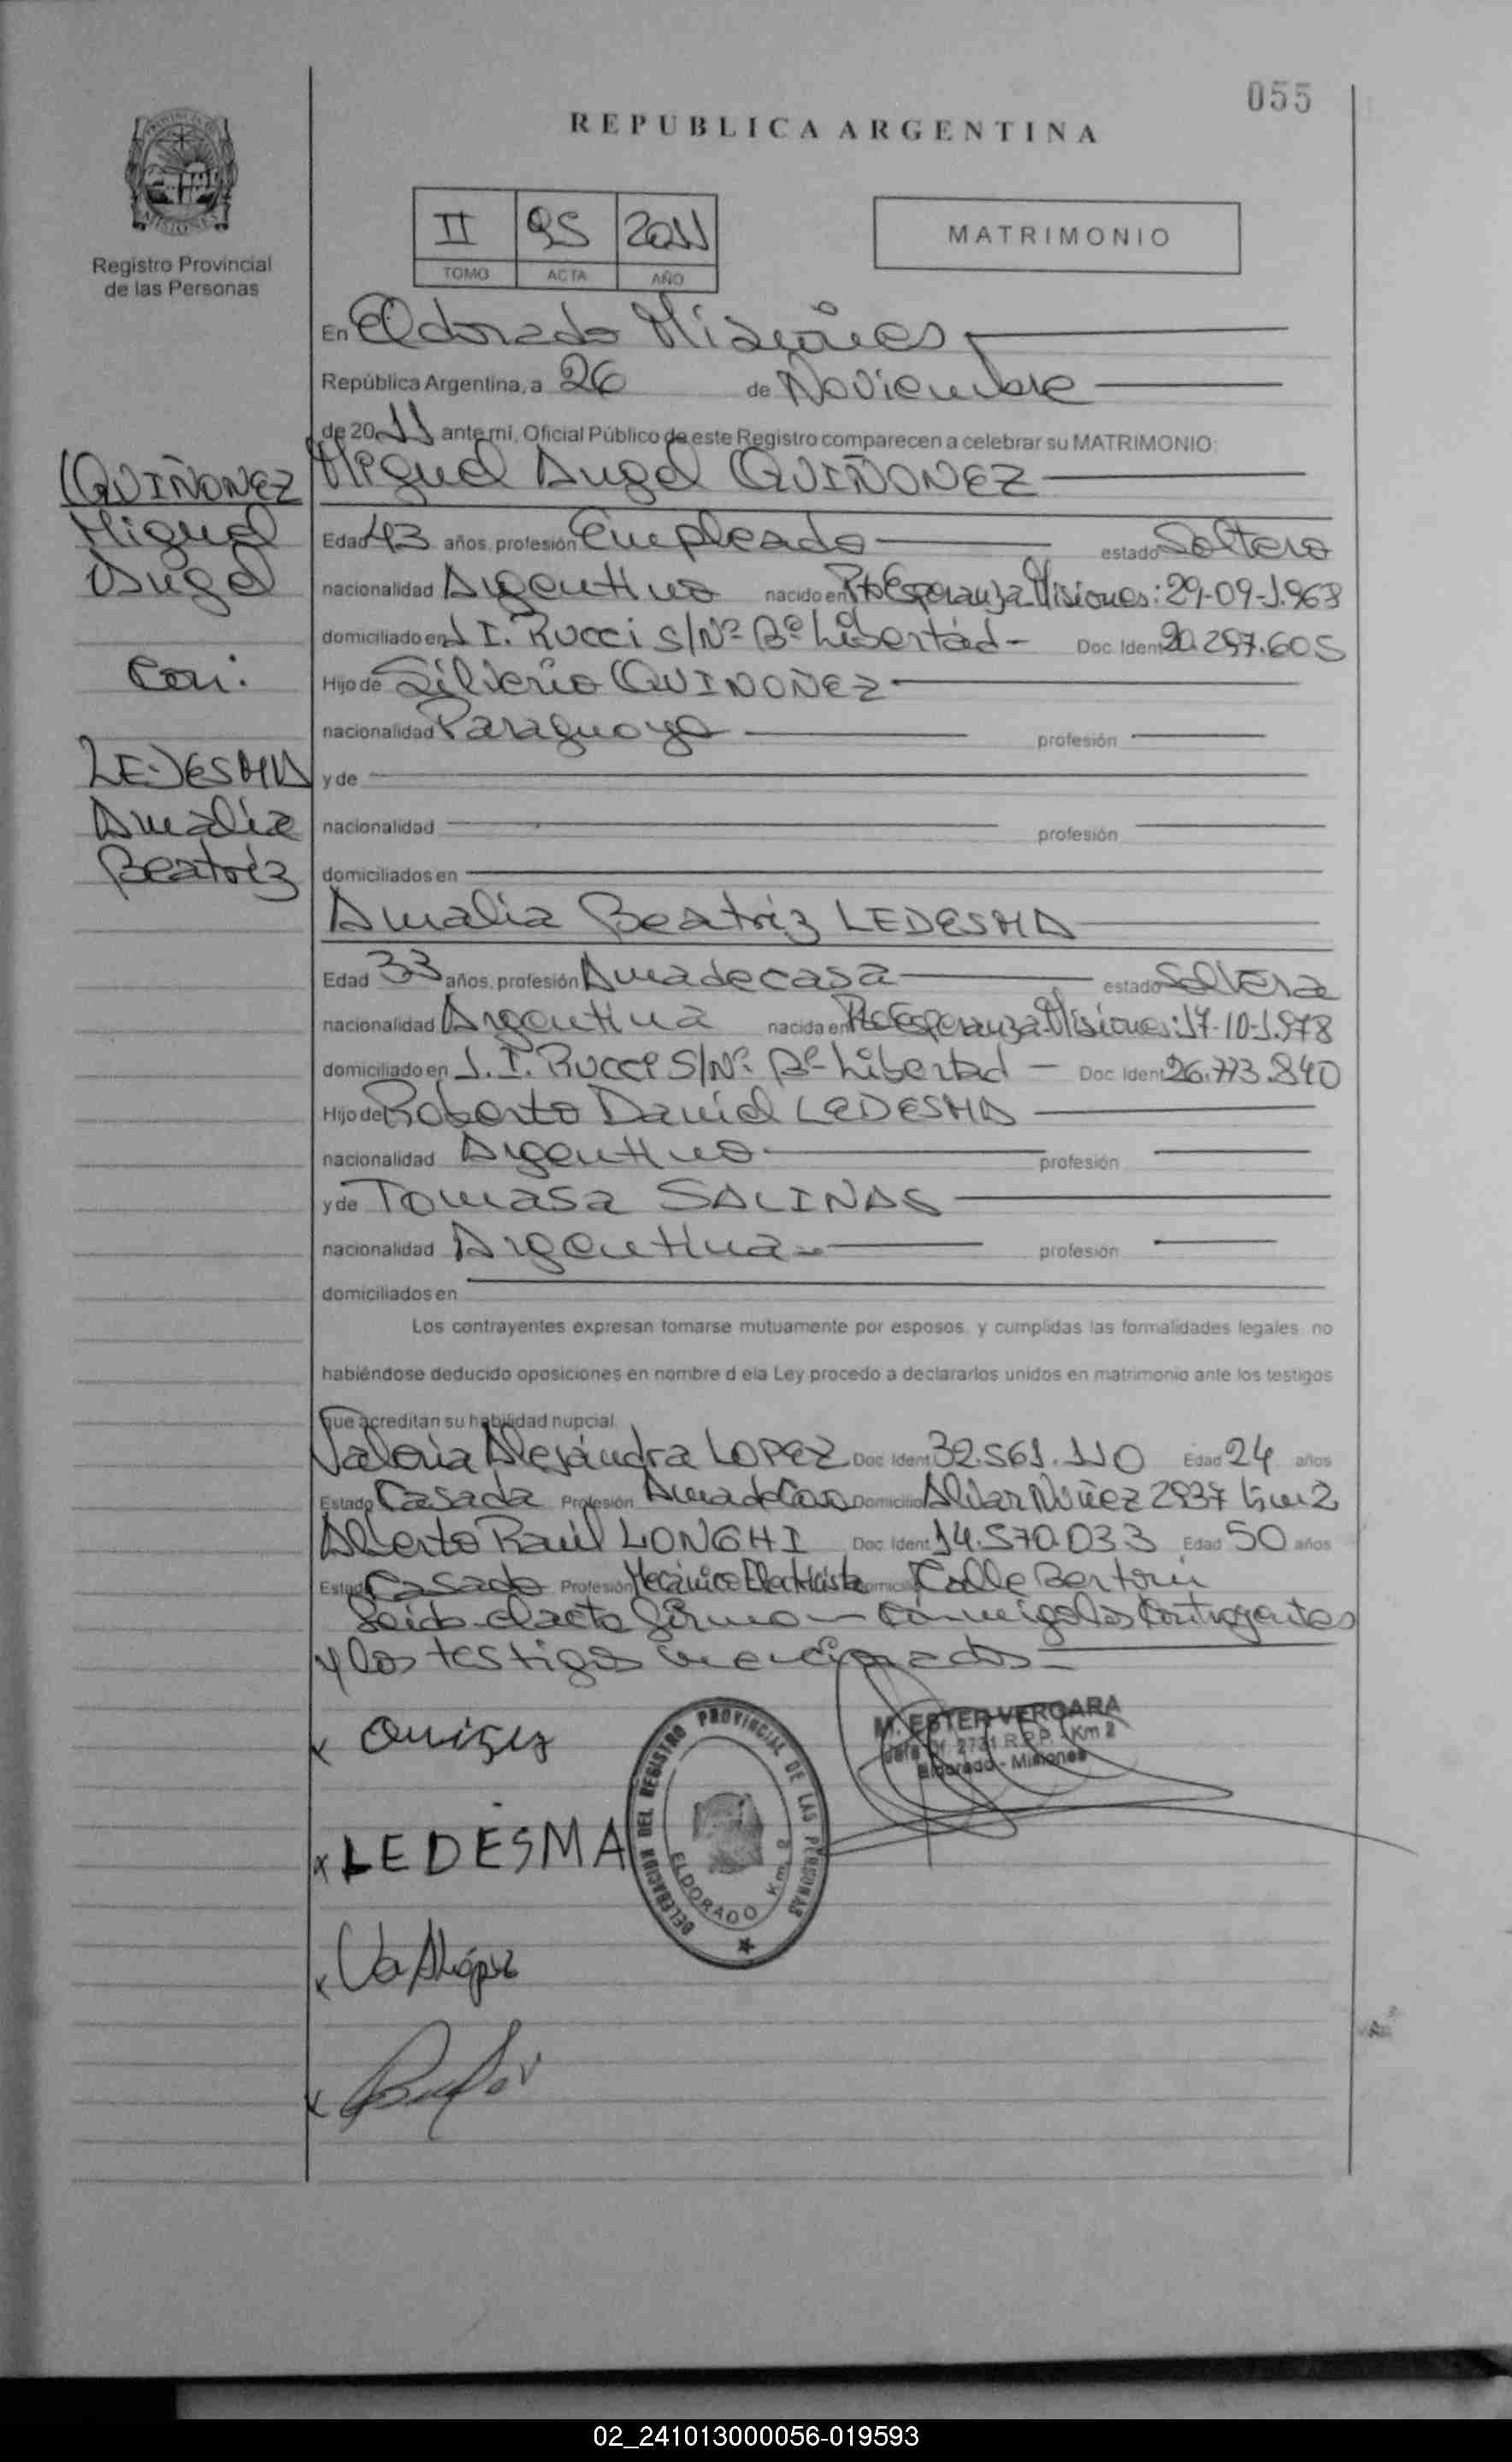 055
REPUBLICA ARGENTINA
PROVINCIA DE
MISIONES
Registro Provincial
de las Personas
II 95 2011
TOMO ACTA AÑO
MATRIMONIO
En Eldorado Misiones
República Argentina, a 26 de Noviembre
de 2011 ante mi, Oficial Público de este Registro comparecen a celebrar su MATRIMONIO:
QUIÑONEZ
Miguel
Angel
Con:
LEDESMA
Amalia
Beatriz
Miguel Angel QUIÑONEZ
Edad 43 años, profesión Empleado estado Soltero
nacionalidad Argentino nacido en Pto Esperanza Misiones: 29-09-1.968
domiciliado en J I. Rucci S/Nº Bº Libertad - Doc. Ident 20.297.605
Hijo de Silverio QUINOÑEZ
nacionalidad Paraguayo profesión
y de
nacionalidad profesión
domiciliados en
Amalia Beatriz LEDESMA
Edad 33 años, profesión Ama de casa estado Soltera
nacionalidad Argentina nacida en Pto Esperanza-Misiones: 17-10-1.978
domiciliado en J. I. Rucci S/Nº Bº Libertad - Doc. Ident 26.773.840
Hijo de Roberto David LEDESMA
nacionalidad Argentino profesión
y de Tomasa SALINAS
nacionalidad Argentina profesión
domiciliados en
Los contrayentes expresan tomarse mutuamente por esposos, y cumplidas las formalidades legales no
habiéndose deducido oposiciones en nombre d ela Ley procedo a declararlos unidos en matrimonio ante los testigos
que acreditan su habilidad nupcial.
Valeria Alejandra LOPEZ Doc. Ident 32.561.110 Edad 24 años
Estado Casada Profesión Ama de Casa Domicilio Alvar Núñez 2937 km 2
Alberto Raúl LONGHI Doc. Ident 14.570.033 Edad 50 años
Estado Casado Profesión Mecánico Electricista Domicilio Calle Bertoni
Leida el acta firman conmigo los contrayentes
y los testigos mencionados
x
M. ESTER VERGARA
Jefe Of. 2721 R.P.P. - Km 2
Eldorado - Misiones
DELEGACION DEL REGISTRO PROVINCIAL DE LAS PERSONAS
ELDORADO Km. 2
x LEDESMA
x
x
02_241013000056-019593